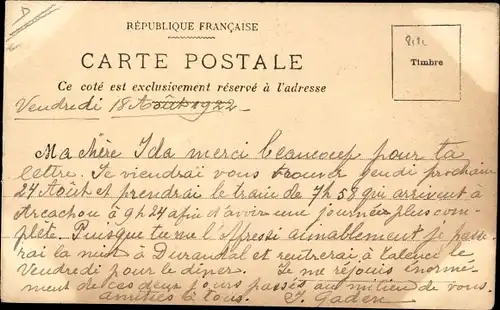 RÉPUBLIQUE FRANÇAISE
CARTE POSTALE
Timbre
Ce coté est exclusivement réservé à l'adresse
Vendredi 18 Août 1922
Ma chère Ida merci beaucoup pour ta
lettre. Je viendrai vous trouver jeudi prochain
24 Août et prendrai le train de 7h58 qui arrivent à
Arcachon à 9h24 afin d'avoir une journée plus com-
plète. Puisque tu me l'offres si aimablement je passe-
rai la nuit à Durandal et rentrerai à Talence le
Vendredi pour le diner. Je me réjouis énormé-
ment de ces deux jours passés au milieu de vous.
amitiés à tous. J. Gaden